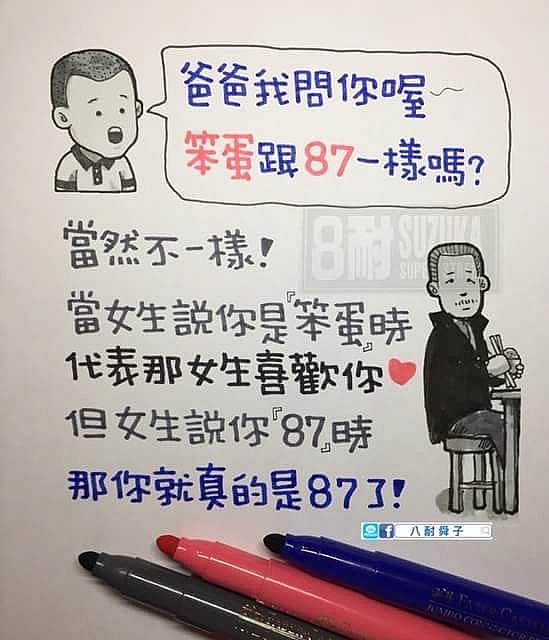 爸爸我問你喔~
笨蛋跟87一樣嗎?
8耐 SUZUKA
當然不一樣!
當女生說你是『笨蛋』時
代表那女生喜歡你
但女生說你『87』時
那你就真的是87了!
八耐舜子